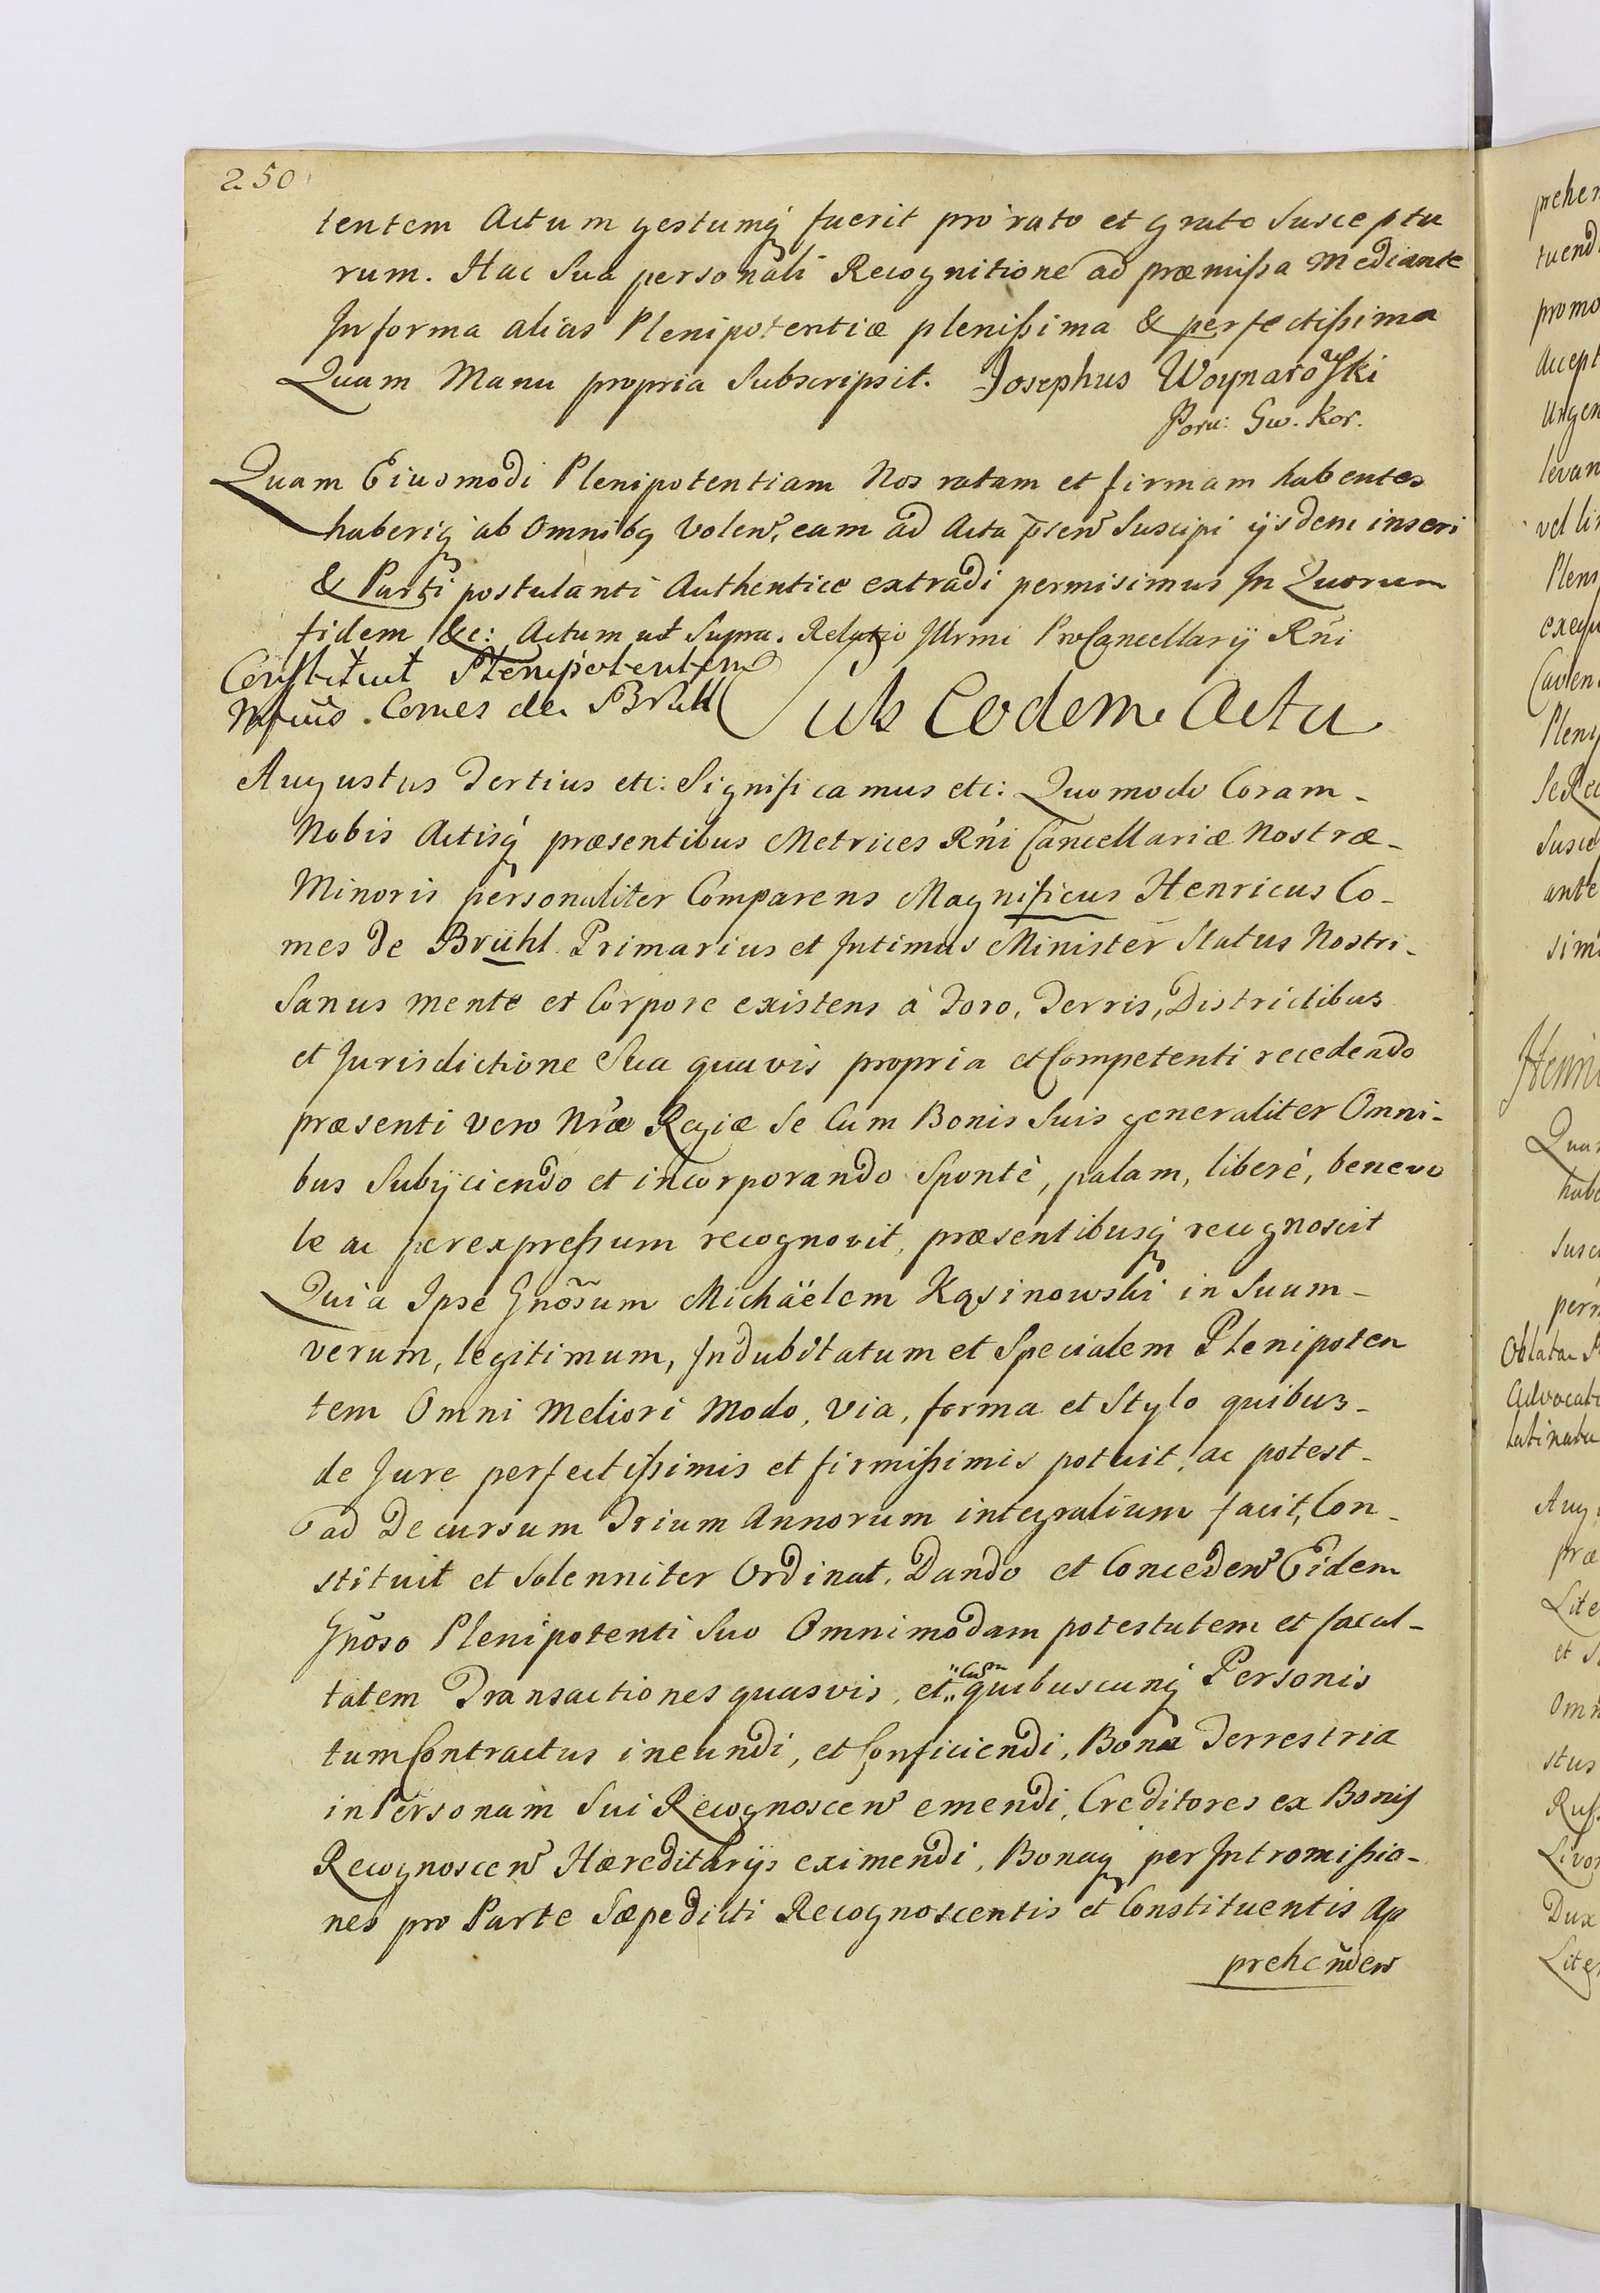 250
tentem Actum gestumq fuerit pro rato et grato Susceptu
rum. Hac Sua personali Recognitione ad præmissa Mediante
In forma alias Plenipotentiæ plenissima & perfectissima
Quam Manu propria Subscripsit. Josephus Woynarowski
Poru: Gw. Kor.
Quam Eiusmodi Plenipotentiam Nos ratam et firmam habentes
haberiq ab Omnibq Volen, eam ad Acta psen Suscipi ijsdem inseri
& Parti postulanti Authentice extradi permisimus In Quorum
fidem &c: Actum ut Supra. Relatio Illrmi ProCancellarij Rñi
Constituit Plenipotentem
Mfcus. Comes de Brühl
Sub Eodem Actu
Augustus Tertius etc: Significamus etc: Quomodo Coram-
Nobis Actisq præsentibus Metrices Rñi Cancellariæ Nostræ-
Minoris personaliter Comparens Magnificus Henricus Co-
mes de Brühl Primarius et Intimus Minister Status Nostri-
Sanus mente et Corpore existens à Foro, Terris, Districtibus
et Jurisdictione Sua quavis propria et Competenti recedendo
præsenti vero Nræ Regiæ Se Cum Bonis Suis generaliter Omni-
bus Subijciendo et incorporando Spontè, palam, liberè, benevo
le ac per expressum recognovit, præsentibusq recognoscit
Quia Ipse Gnõsum Michäelem Kąsinowski in Suum-
verum, legitimum, Indubitatum et Specialem Plenipoten
tem Omni Meliori Modo, Via, forma et Stylo quibus-
de Jure perfectissimis et firmissimis potuit, ac potest-
ad Decursum Trium Annorum integralium facit, Con-
stituit et Solenniter Ordinat. Dando et Conceden Eidem
Gnõso Plenipotenti Suo Omnimodam potestatem et facul-
tatem Transactiones quasvis, et
"cum
quibuscunq Personis
tum Contractus ineundi, et Conficiendi, Bona Terrestria
in Personam Sui Recognoscen emendi, Creditores ex Bonis
Recognoscen Hæreditarijs eximendi, Bonaq per Intromissio-
nes pro Parte Sæpedicti Recognoscentis et Constituentis Ap
prehenden